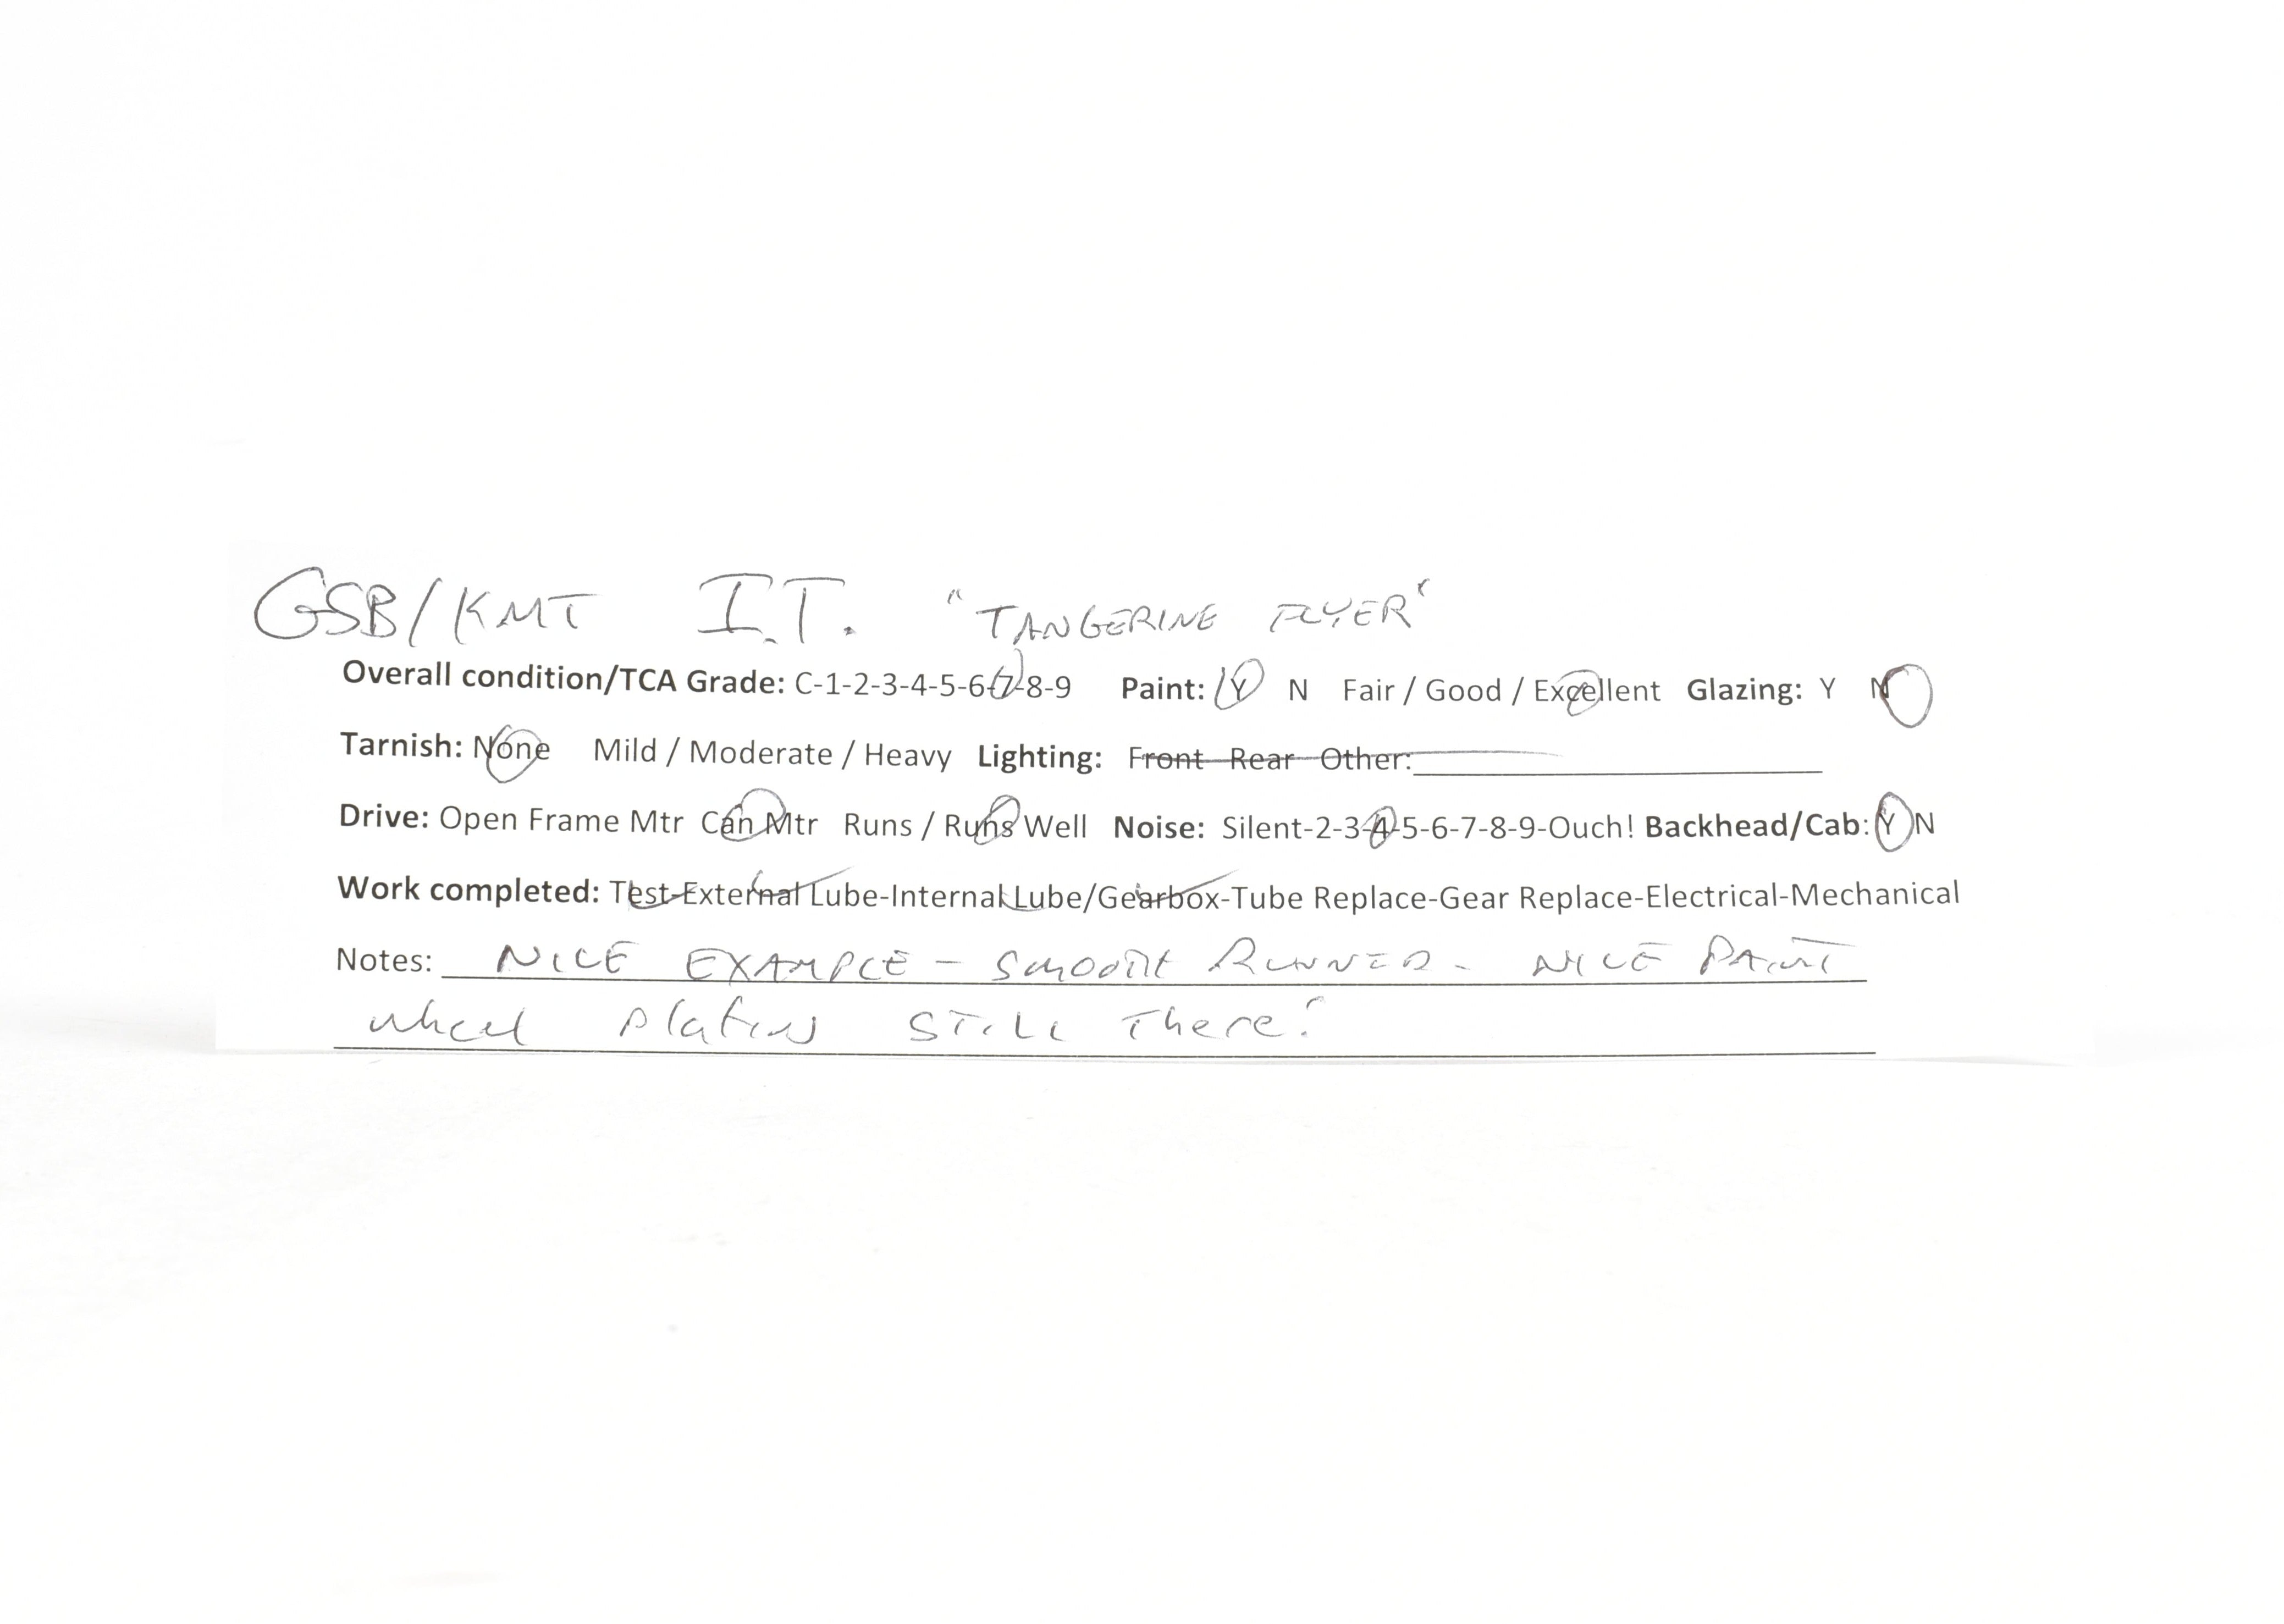 GSB/KMT I.T. "TANGERINE FLYER"
Overall condition/TCA Grade: C-1-2-3-4-5-6-7-8-9 Paint: Y N Fair / Good / Excellent Glazing: Y N
Tarnish: None Mild / Moderate / Heavy Lighting: Front Rear Other:
Drive: Open Frame Mtr Can Mtr Runs / Runs Well Noise: Silent-2-3-4-5-6-7-8-9-Ouch! Backhead/Cab: Y N
Work completed: Test-External Lube-Internal Lube/Gearbox-Tube Replace-Gear Replace-Electrical-Mechanical
Notes: NICE EXAMPLE - SMOOTH RUNNER. NICE PAINT
wheel plating STILL There!